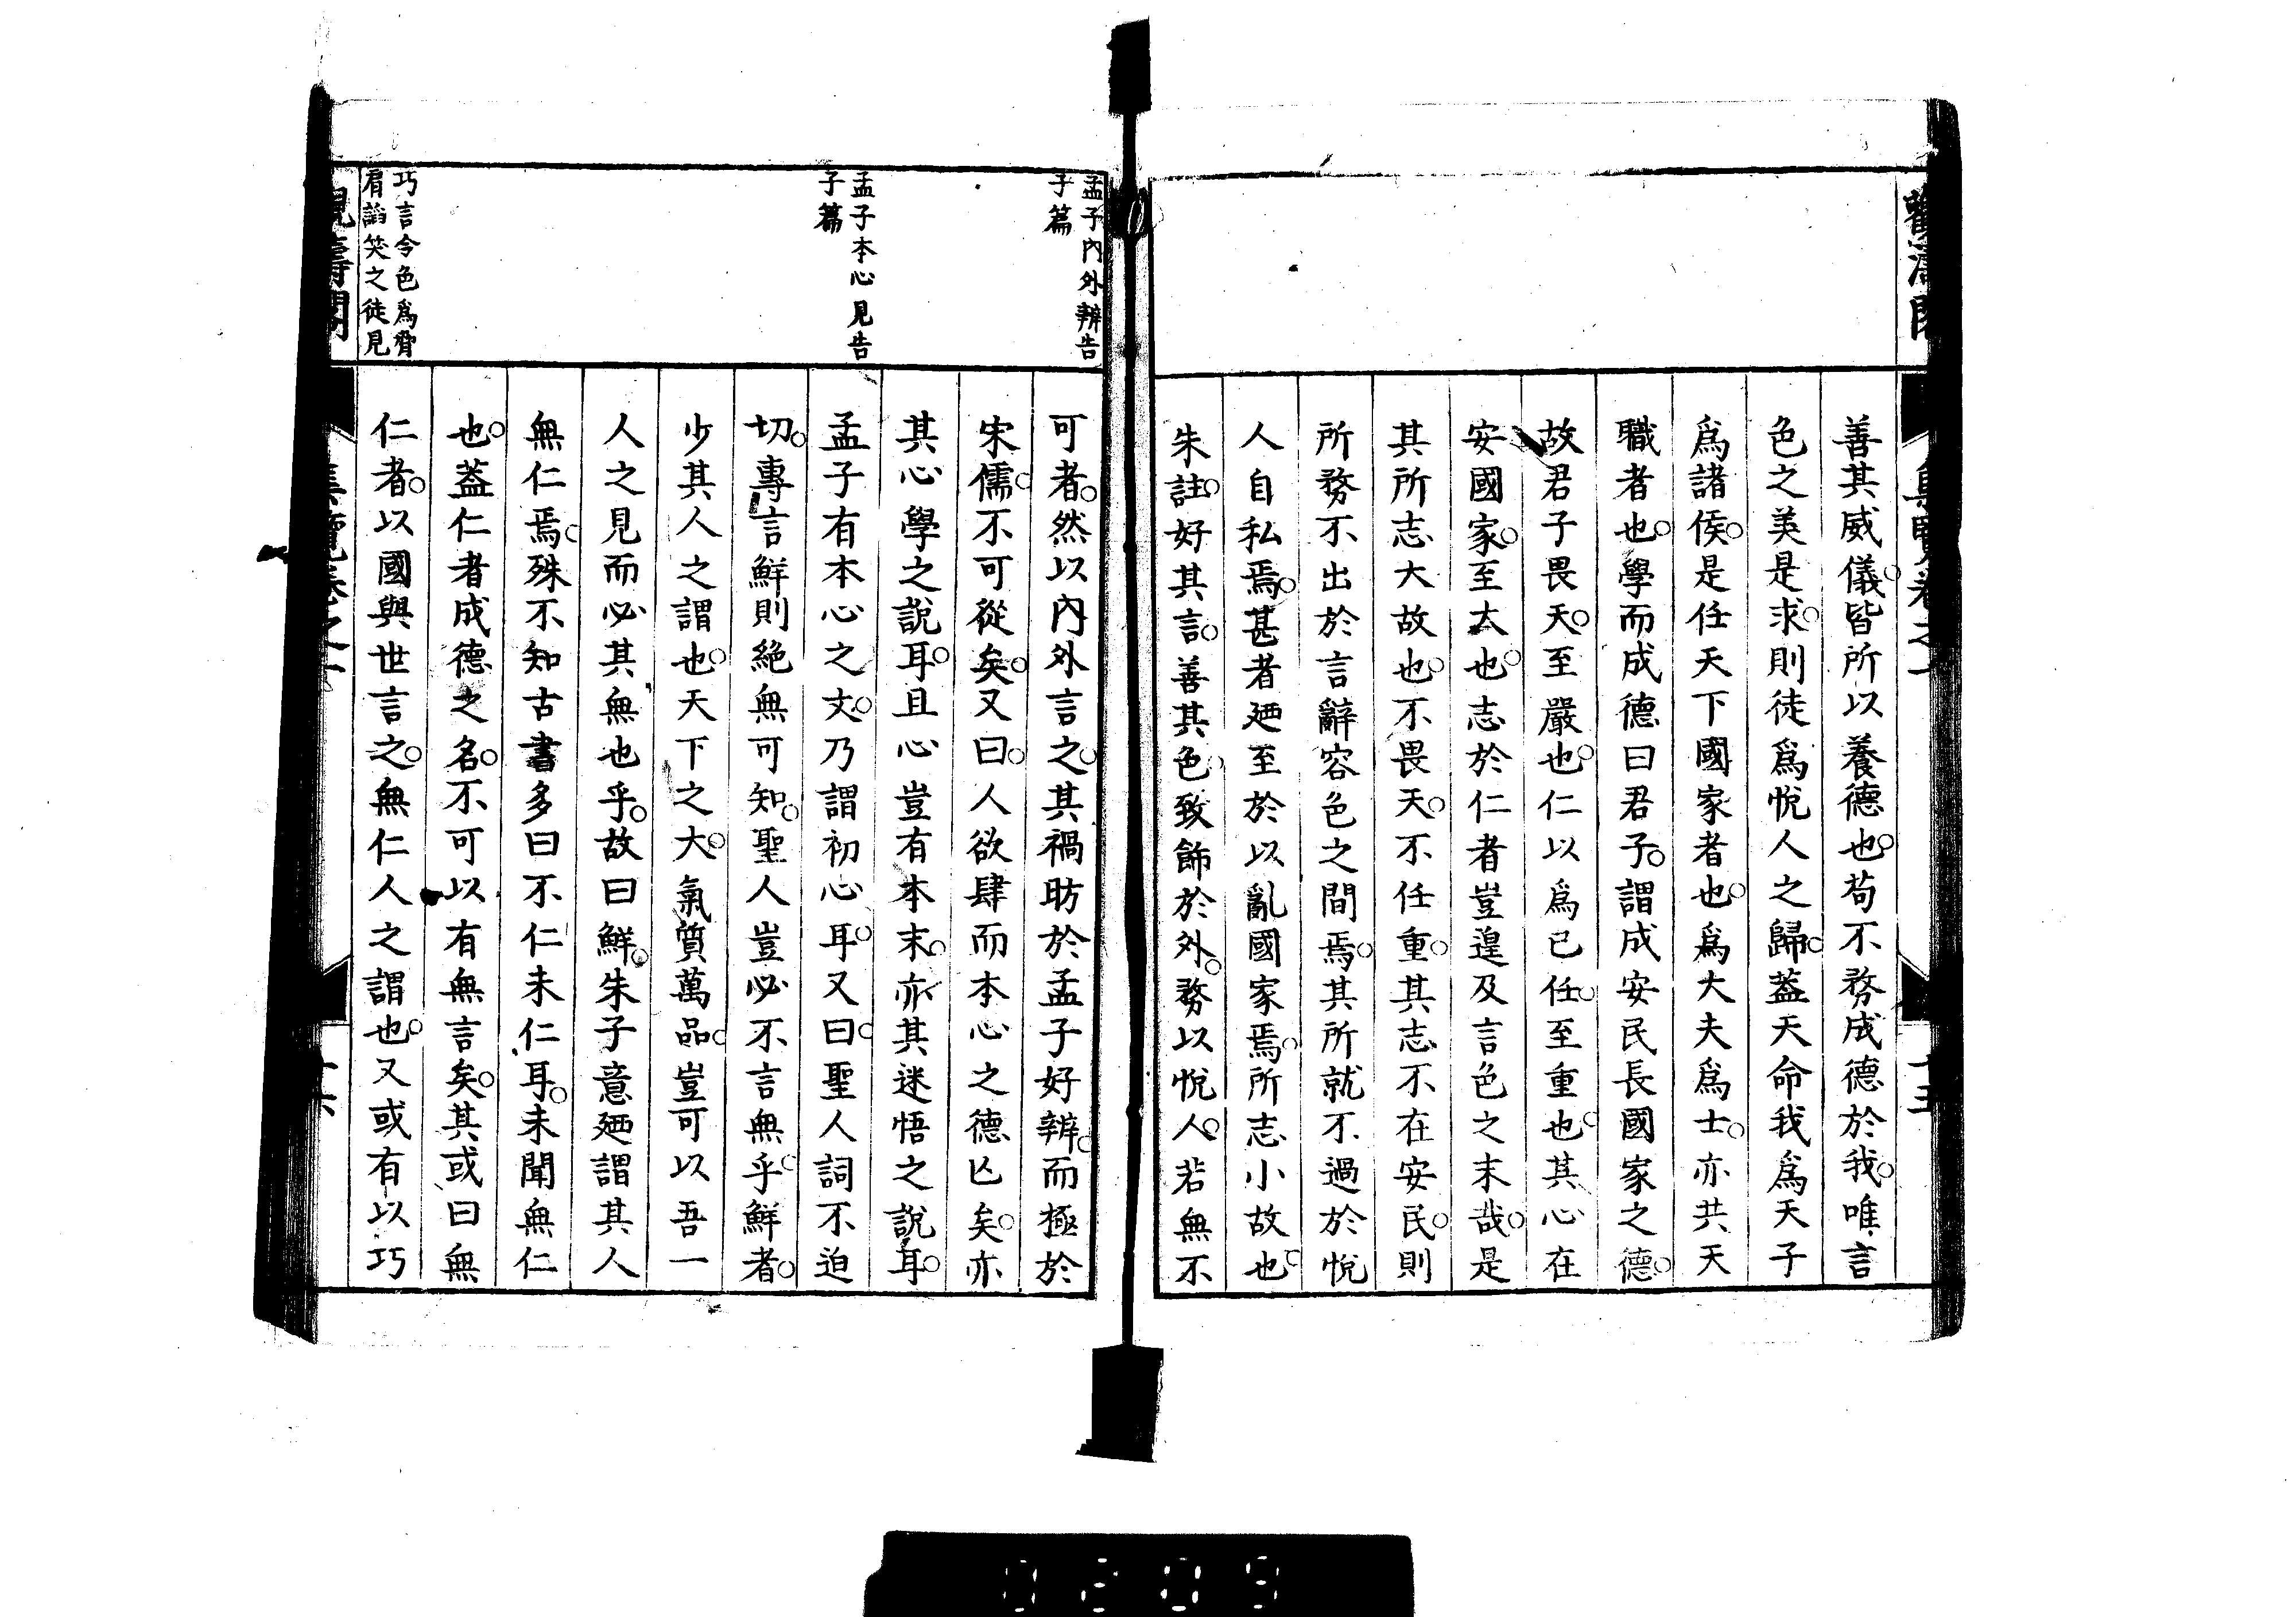 善其威儀皆所以養德也苟不務成德於我唯言
色之美是求則徒爲悅人之歸葢天命我爲天子
爲諸侯是任天下國家者也爲大夫爲士亦共天
職者也學而成德曰君子謂成安民長國家之德
故君子畏天至嚴也仁以爲己任至重也其心在
安國家至大也志於仁者豈遑及言色之末哉是
其所志大故也不畏天不任重其志不在安民則
所務不出於言辭容色之間焉其所就不過於悅
人自私焉甚者廼至於以亂國家焉所志小故也
朱註好其言善其色致飾於外務以悅人若無不
孟子內外辨告
子篇
可者然以內外言之其禍昉於孟子好辨而極於
宋儒不可從矣又曰人欲肆而本心之德亾矣亦
其心學之說耳且心豈有本末亦其迷悟之說耳
孟子本心見告
子篇
孟子有本心之丈乃謂初心耳又曰聖人詞不迫
切專言鮮則絕無可知聖人豈必不言無乎鮮者
少其人之謂也天下之大氣質萬品豈可以吾一
人之見而必其無也乎故曰鮮朱子意廼謂其人
無仁焉殊不知古書多曰不仁未仁耳未聞無仁
也葢仁者成德之名不可以有無言矣其或曰無
巧言令色爲脅
肩諂笑之徒見
仁者以國與世言之無仁人之謂也又或有以巧